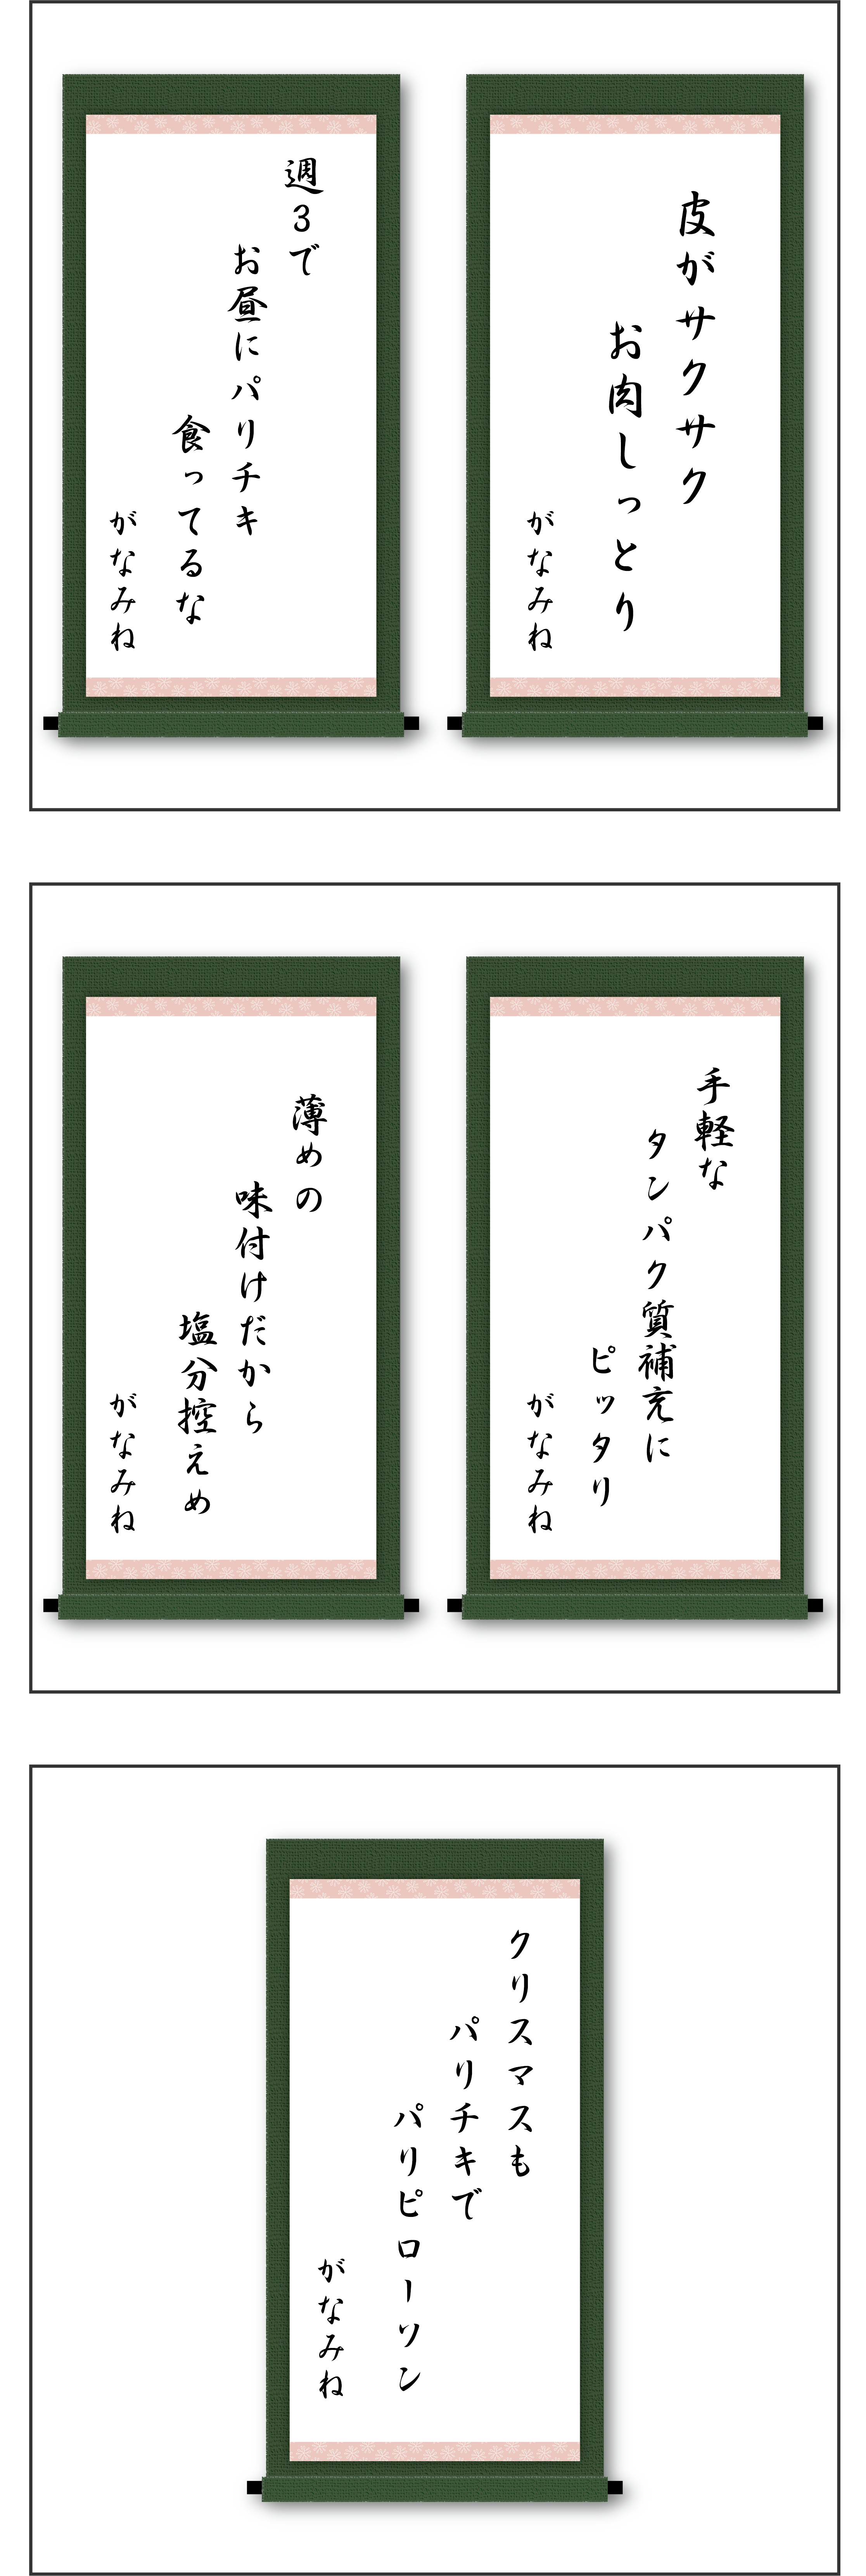 皮がサクサク
お肉しっとり
がなみね
週3で
お昼にパリチキ
食ってるな
がなみね
手軽な
タンパク質補充に
ピッタリ
がなみね
薄めの
味付けだから
塩分控えめ
がなみね
クリスマスも
パリチキで
パリピローソン
がなみね